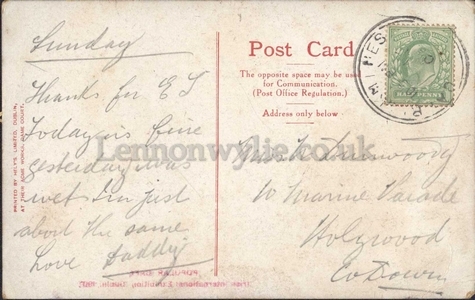 Sunday
Thanks for E L
Today is fine
yesterday was
wet I'm just
about the same
love Daddy
Post Card
The opposite space may be used
for Communication.
(Post Office Regulation.)
Address only below
HALF PENNY
Miss
10 Marine Parade
Holywood
Co Down
PRINTED BY HELY'S LIMITED, DUBLIN,
AT THEIR ACME WORKS, DAME COURT.
Lennonwylie.co.uk